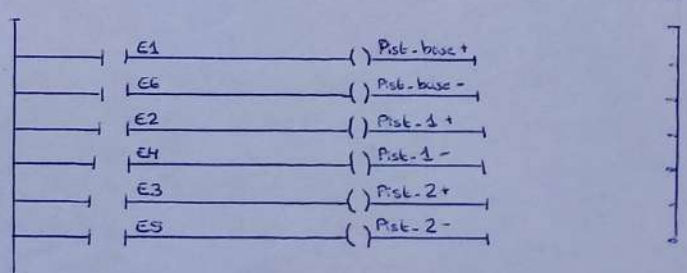 E1 Pist_base+
E6 Pist_base-
E2 Pist_1+
E4 Pist_1-
E3 Pist_2+
E5 Pist_2-